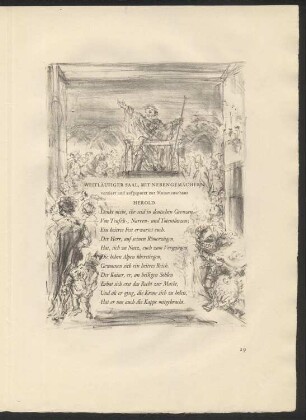 WEITLÄUFIGER SAAL, MIT NEBENGEMÄCHERN
verziert und aufgeputzt zur Mummenschanz
HEROLD
Denkt nicht, ihr seid in deutschen Grenzen
Von Teufels-, Narren- und Totentänzen;
Ein heitres Fest erwartet euch.
Der Herr, auf seinen Römerzügen,
Hat, sich zu Nutz, euch zum Vergnügen,
Die hohen Alpen überstiegen,
Gewonnen sich ein heitres Reich.
Der Kaiser, er, an heiligen Sohlen
Erbat sich erst das Recht zur Macht,
Und als er ging, die Krone sich zu holen,
Hat er uns auch die Kappe mitgebracht.
29